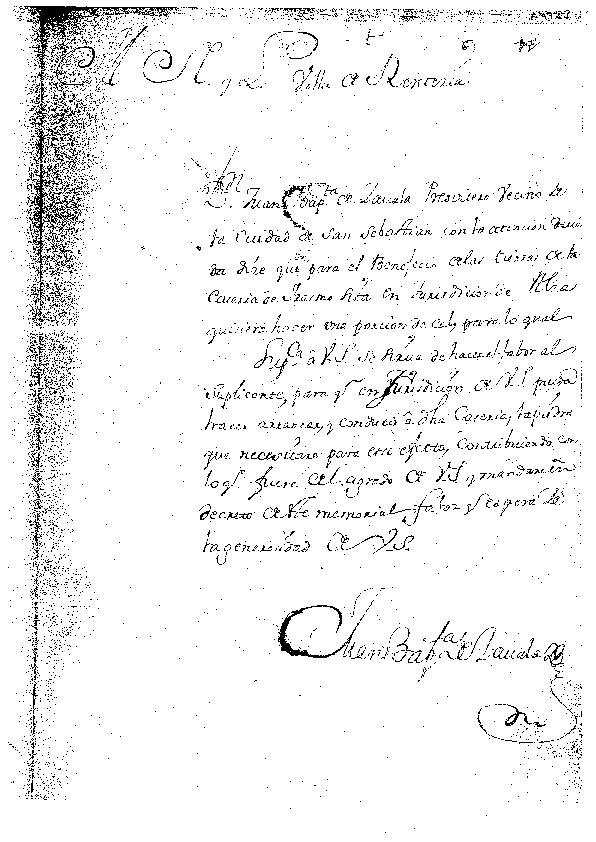 M N y L Villa de Renteria
Dn Juan Bapta de Zavala Presvitero Vecino de
la Ciudad de San Sebastian con la atencion devi
da dize que para el Beneficio de las tierras de la
Caseria de Sita en Jurisdicion de Alza
quisiera hacer una porcion de cal, para lo qual
Suppca à V.S. se sirva de hacer el fabor al
suplicante, para qe en Juridicion de V.S. pueda
hacer arrancar, y conducir à dha Caseria, la piedra
que necesitare para este efecto, Contribuiendo con
lo qe fuere del agrado de V.S. y mandar en
decreto de este memorial, fabor qe espera de
la generosidad de V.S.
Juan Bapta de Zavala